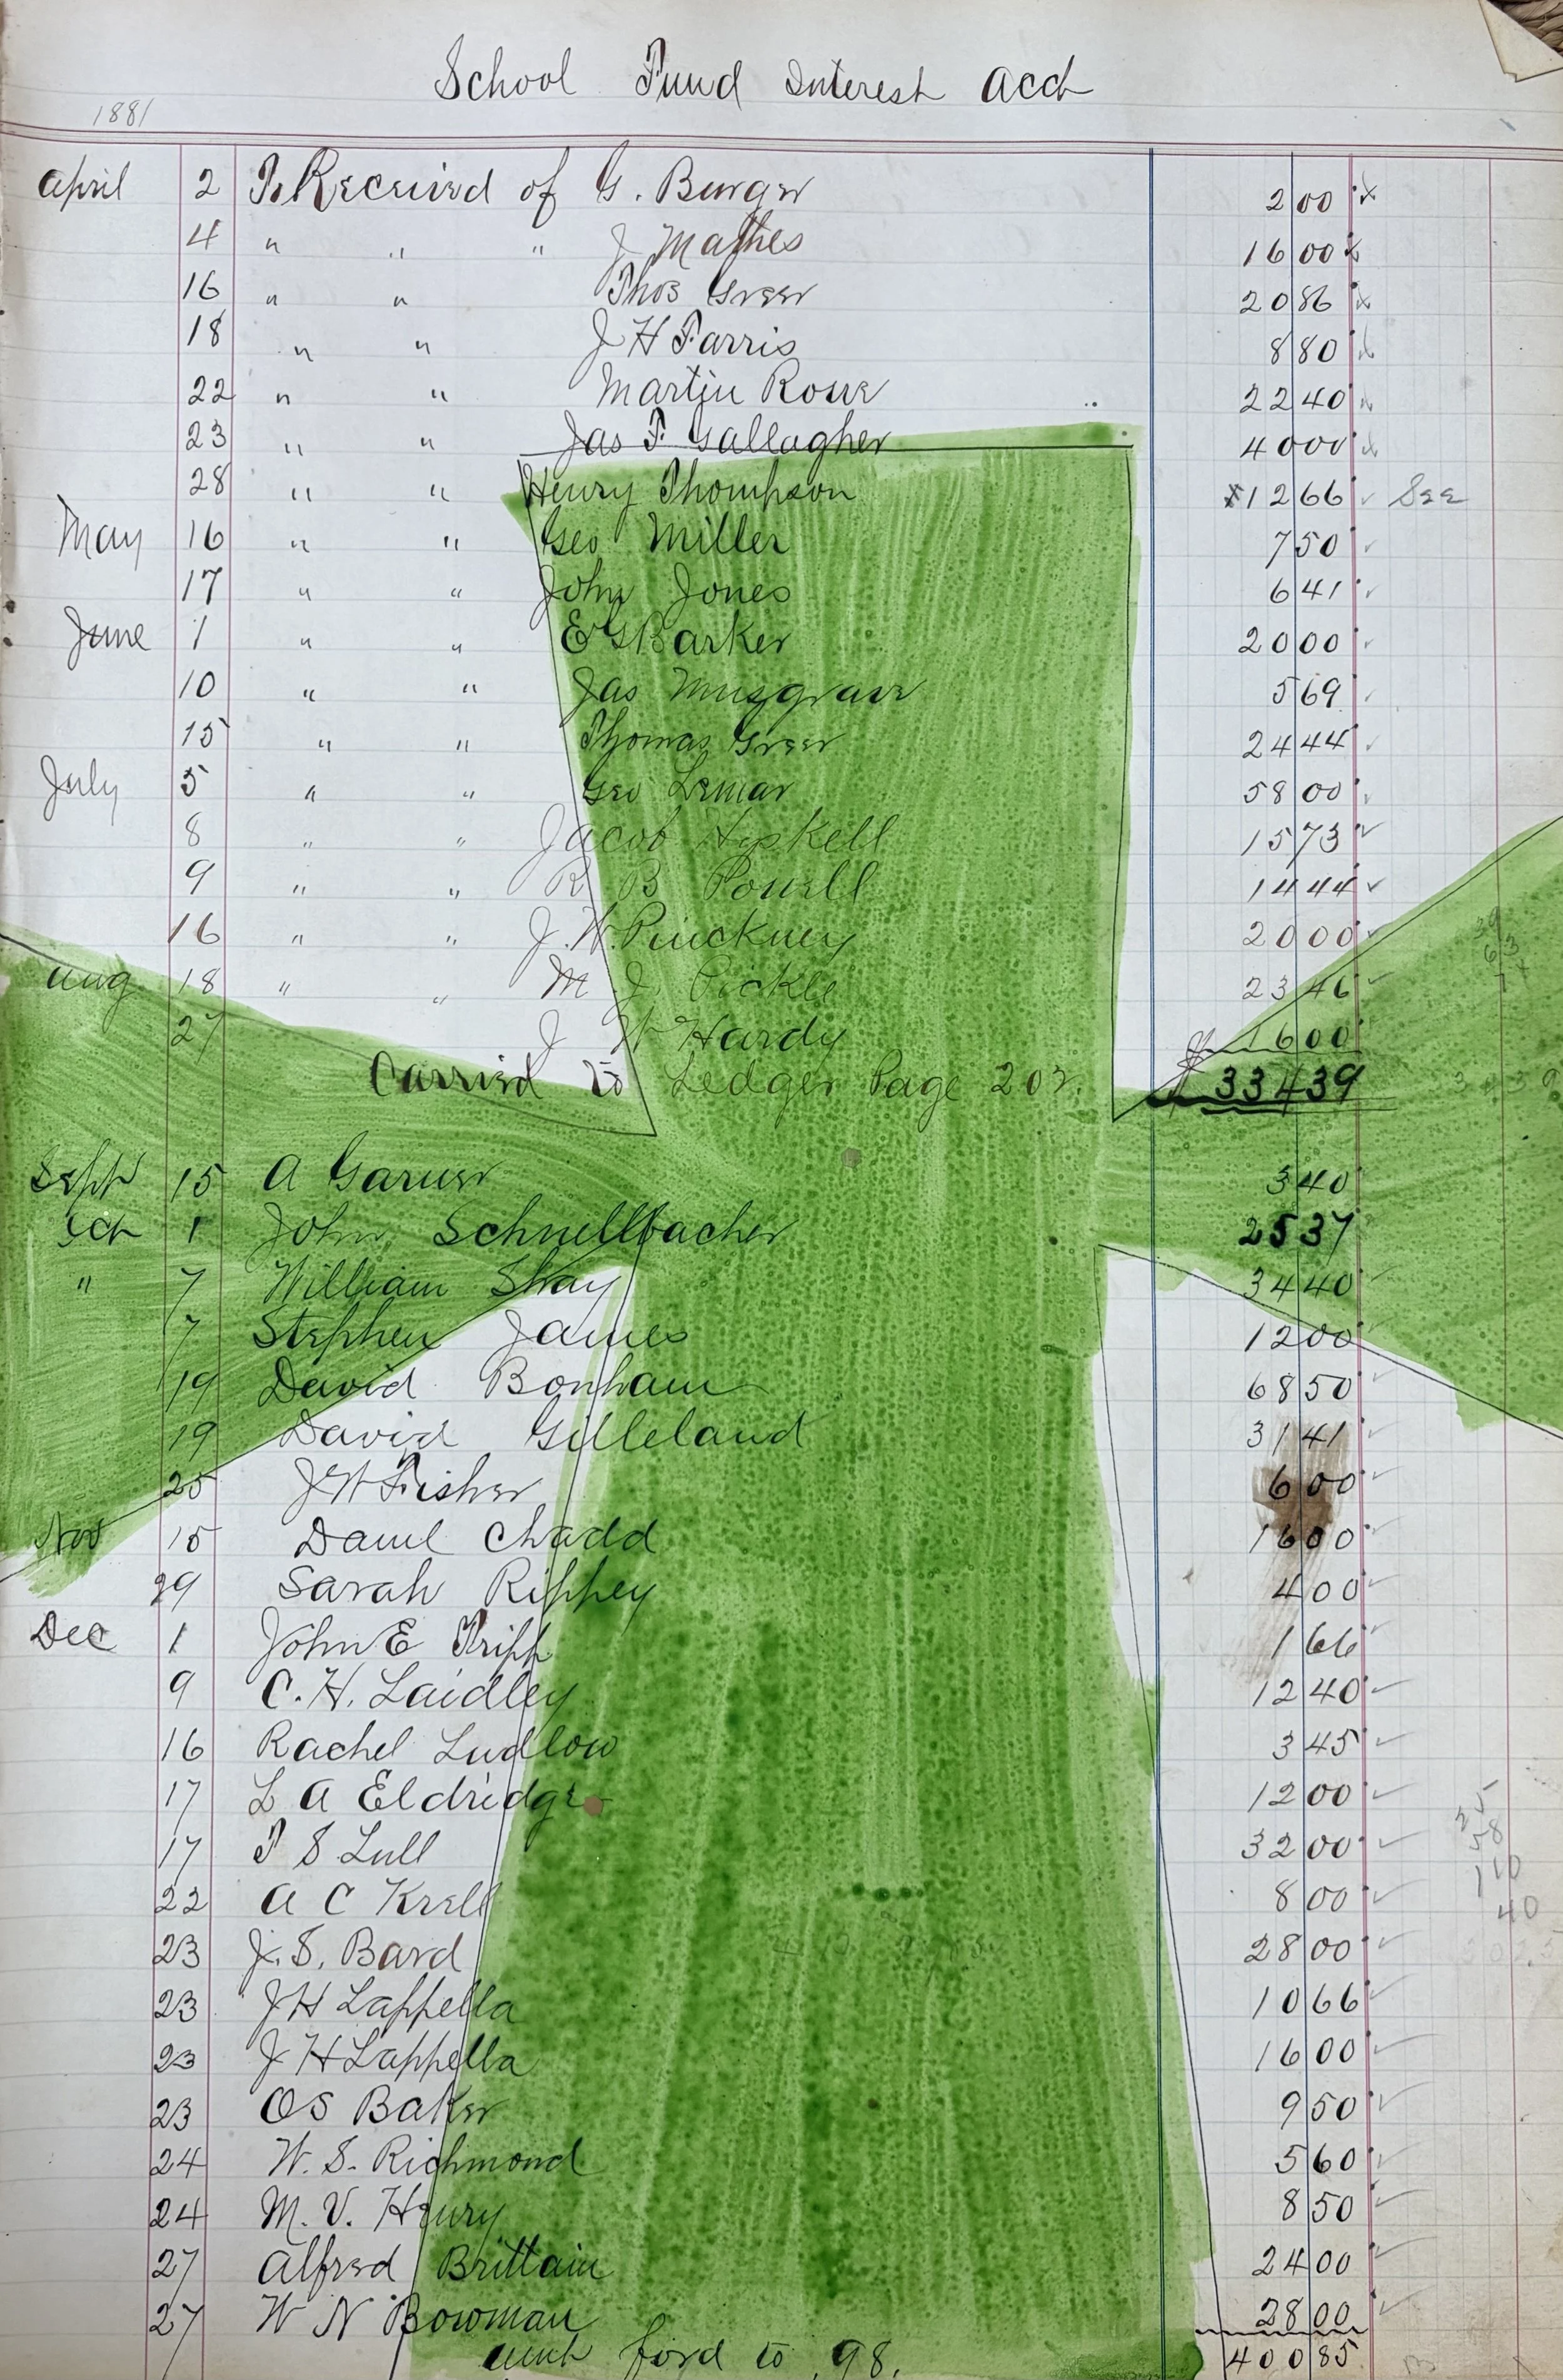 School Fund Interest Acct
1881
April 2 To Received of G. Burger 2 00 x
4 " " " J Mathes 16 00 x
16 " " Thos Greer 20 86 x
18 " " J H Farris 8 80 x
22 " " Martin Rowe 22 40 x
23 " " Jas F. Gallagher 40 00 x
28 " " Henry Thompson x 12 66 ✓ See
May 16 " " Geo Miller 7 50 ✓
17 " " John Jones 6 41 ✓
June 1 " " E G Barker 20 00 ✓
10 " " Jas Musgrave 5 69 ✓
15 " " Thomas Greer 24 44 ✓
July 5 " " Geo Lemar 58 00 ✓
8 " " Jacob Hyskell 15 73 ✓
9 " " R B Powell 14 44 ✓
16 " " J. W. Pinckney 20 00 ✓
Aug 18 " " M J Pickle 23 46 ✓
27 J W Hardy 16 00
Carried to Ledger Page 202. $ 334 39
Sept 15 A Garner 3 40
Oct 1 John Schnellbacher 25 37
" 7 William Shay 34 40 ✓
7 Stephen James 12 00
19 David Bonham 68 50 ✓
19 David Gilleland 31 41 ✓
25 J W Fisher 6 00 ✓
Nov 15 Danl Chadd 16 00 ✓
29 Sarah Rippey 4 00 ✓
Dec 1 John E Tripp 1 66 ✓
9 C. H. Laidley 12 40 ✓
16 Rachel Ludlow 3 45 ✓
17 L A Eldridge 12 00 ✓
17 T S Lull 32 00 ✓
22 A C Krell 8 00 ✓
23 J. S. Bard 28 00 ✓
23 J H Lappella 10 66 ✓
23 J H Lappella 16 00 ✓
23 O S Baker 9 50 ✓
24 W. S. Richmond 5 60 ✓
24 M. V. Henry 8 50 ✓
27 Alfred Brittain 24 00 ✓
27 W N Bowman 28 00 ✓
amt ford to 98. 400 85